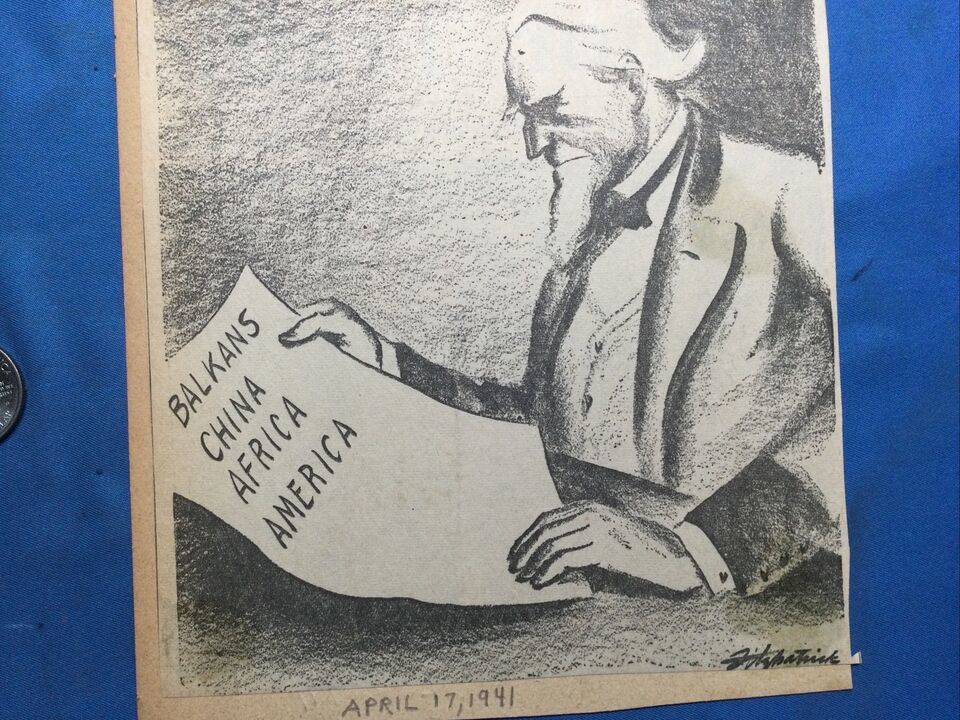 BALKANS
CHINA
AFRICA
AMERICA
Fitzpatrick
APRIL 17, 1941